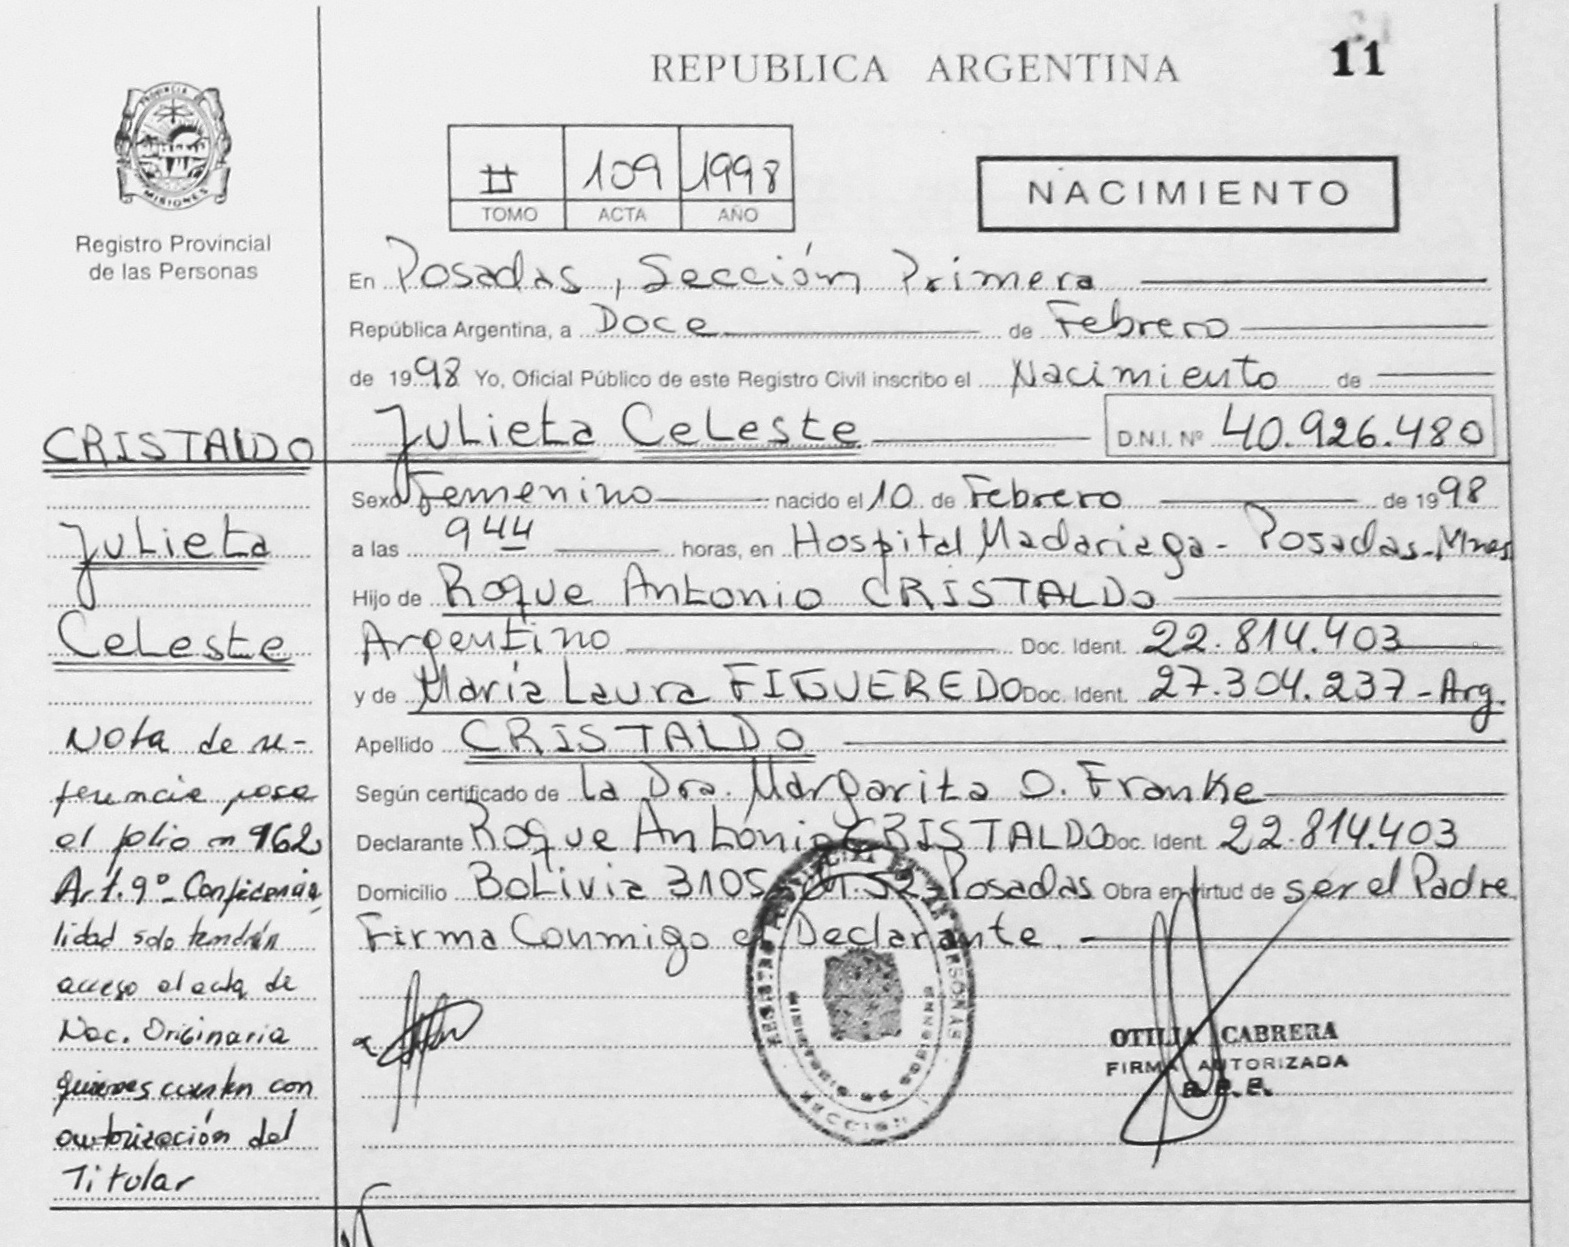 11
REPUBLICA ARGENTINA
PROVINCIA DE
MISIONES
Registro Provincial
de las Personas
II 109 1998
TOMO ACTA AÑO
NACIMIENTO
En Posadas, Sección Primera
República Argentina, a Doce de Febrero
de 1998 Yo, Oficial Público de este Registro Civil inscribo el Nacimiento de
Julieta Celeste D.N.I. Nº 40.926.480
Sexo Femenino nacido el 10 de Febrero de 1998
a las 9 44 horas, en Hospital Madariaga - Posadas - Mnes
Hijo de Roque Antonio CRISTALDO
Argentino Doc. Ident. 22.814.403
y de María Laura FIGUEREDO Doc. Ident. 27.304.237 - Arg.
Apellido CRISTALDO
Según certificado de la Dra. Margarita O. Franke
Declarante Roque Antonio CRISTALDO Doc. Ident. 22.814.403
Domicilio Bolivia 3105 Posadas Obra en virtud de ser el Padre
Firma Conmigo el Declarante.
CRISTALDO
Julieta
Celeste
Nota de re-
ferencia pasa
el folio n 962
Art. 9º - Confidencia
lidad solo tendrán
acceso al acta de
Nac. Originaria
quienes cuenten con
autorización del
Titular
OTILIA CABRERA
FIRMA AUTORIZADA
SECCION